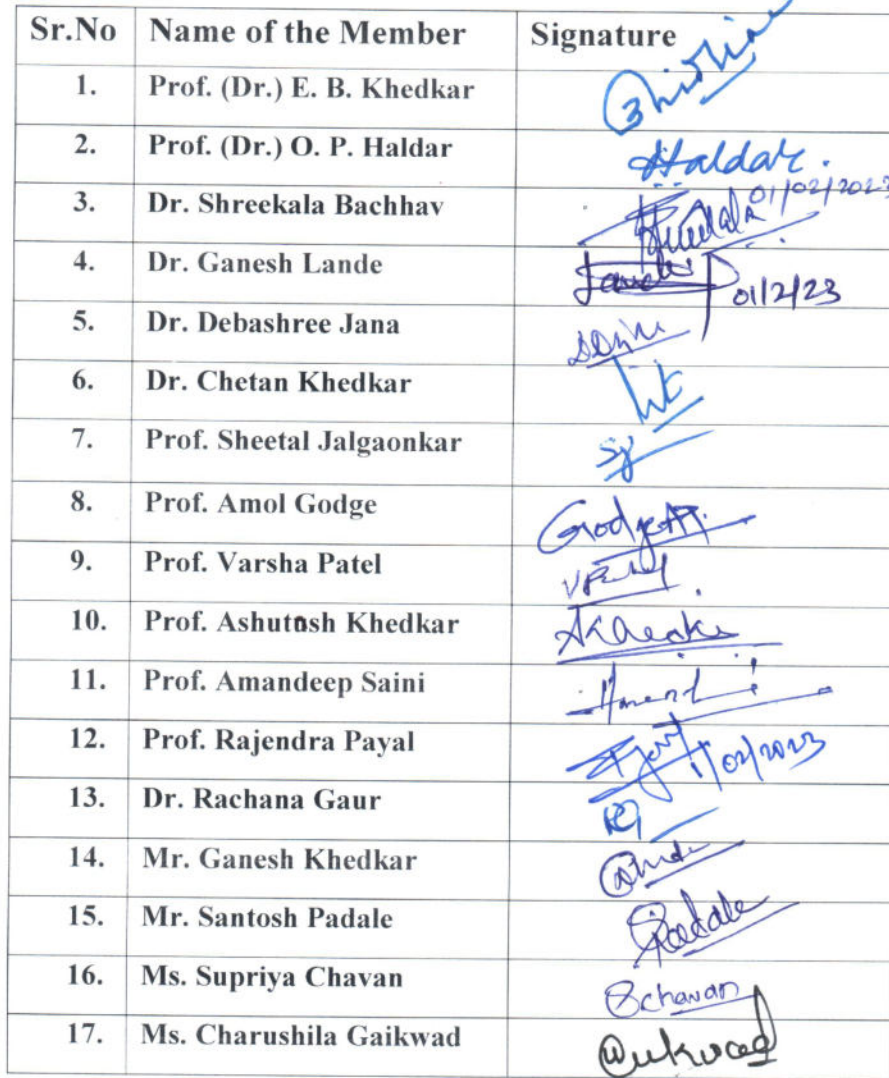 Sr.No Name of the Member Signature
1. Prof. (Dr.) E. B. Khedkar
2. Prof. (Dr.) O. P. Haldar Haldar.
3. Dr. Shreekala Bachhav 01/02/2023
4. Dr. Ganesh Lande Lande 01/2/23
5. Dr. Debashree Jana
6. Dr. Chetan Khedkar
7. Prof. Sheetal Jalgaonkar SJ
8. Prof. Amol Godge
9. Prof. Varsha Patel
10. Prof. Ashutosh Khedkar
11. Prof. Amandeep Saini
12. Prof. Rajendra Payal 1/02/2023
13. Dr. Rachana Gaur RG
14. Mr. Ganesh Khedkar
15. Mr. Santosh Padale Padale
16. Ms. Supriya Chavan Schavan
17. Ms. Charushila Gaikwad